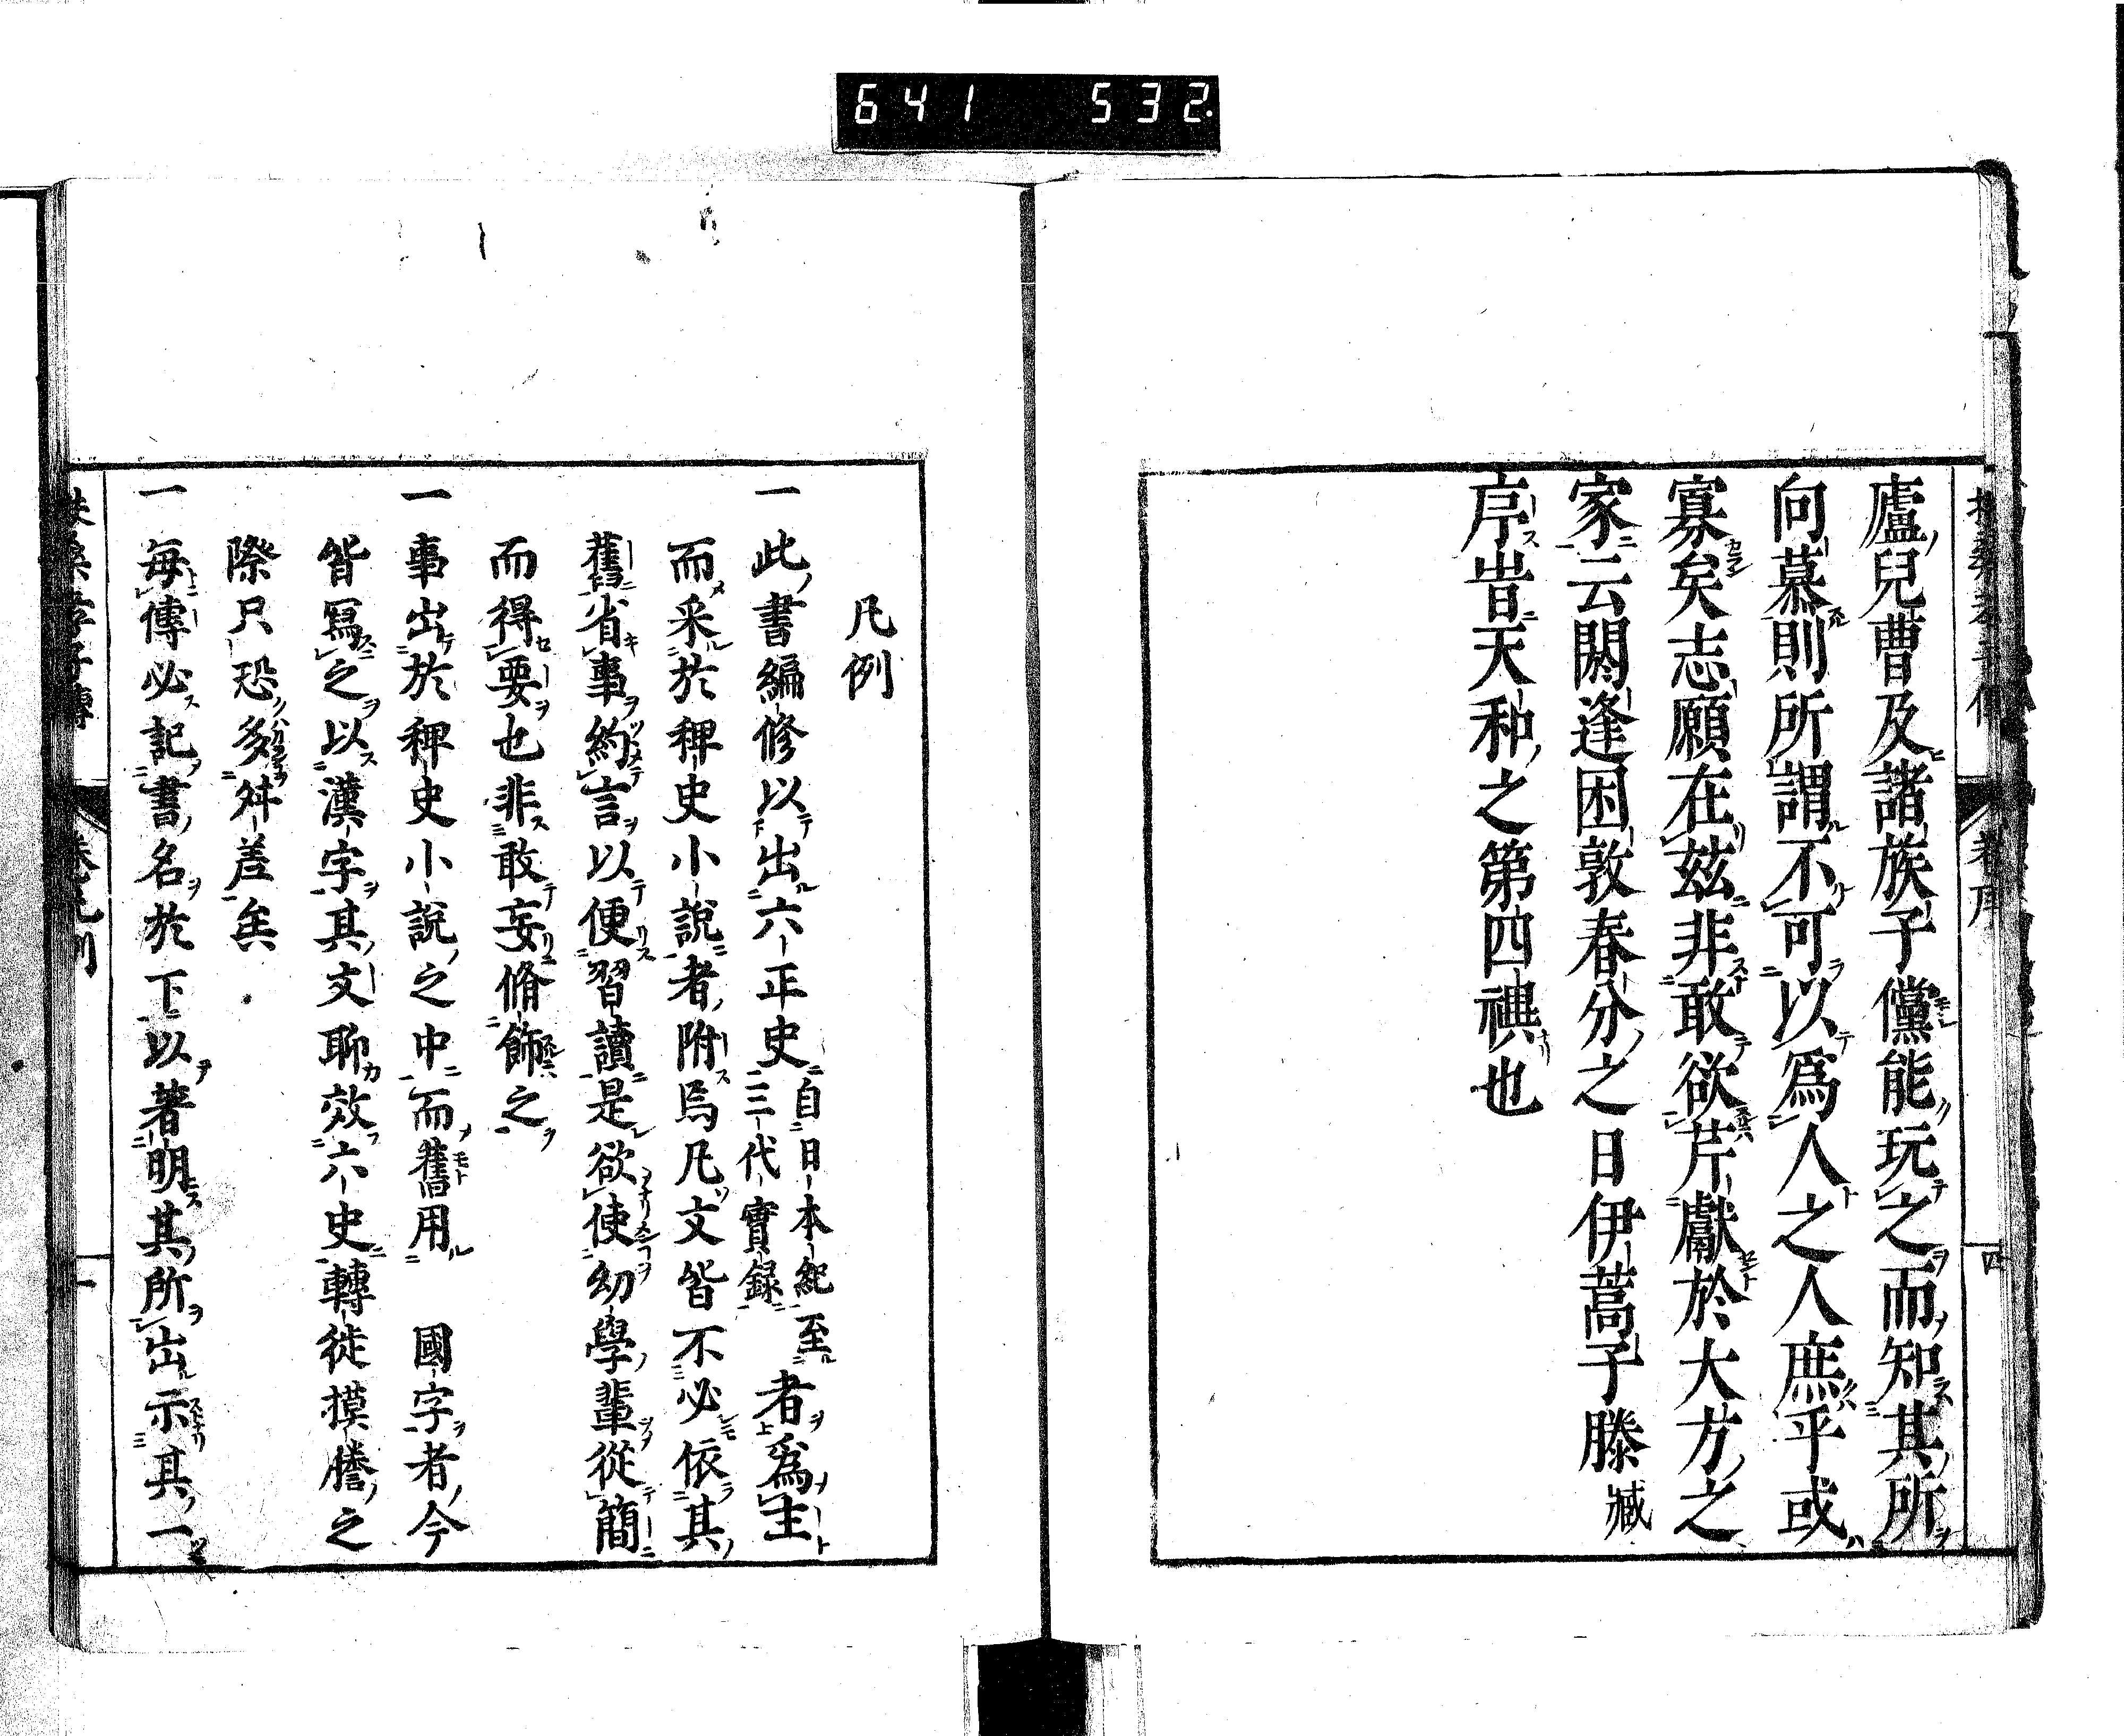 641 532
廬兒曹及諸族子儻能玩之而知其所
向慕則所謂不可以爲人之人庶乎或
寡矣志願在茲非敢欲芹獻於大方之
家云閼逢困敦春分之日伊蒿子滕臧
序旹天和之第四禩也
四
凡例
一此書編修以出六正史自日本紀至三代實録者爲主
而采於稗史小說者附焉凡文皆不必依其
舊省事約言以便習讀是欲使幼學輩從簡
而得要也非敢妄脩飾之
一事出於稗史小說之中而舊用 國字者今
皆寫之以漢字其文聊效六史轉徙摸謄之
際只恐多舛差矣
一每傳必記書名於下以著明其所出示其一